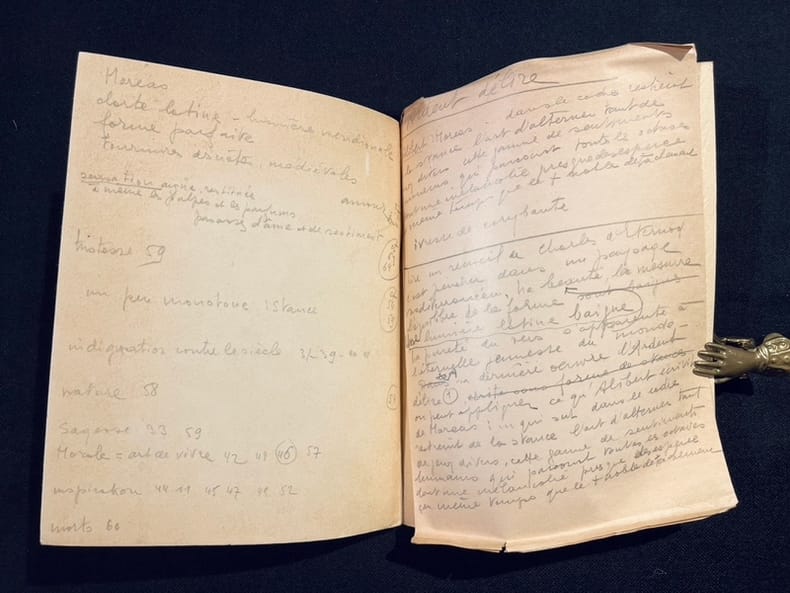 Moréas
clarté latine - lumière méridionale
forme parfaite
tournures désuètes, médiévales
sensation aiguë, restituée
à même les pulpes et les parfums
paysages d'âme et de sentiment
tristesse 59
un peu monotone : stance
indignation contre le siècle 3/ 39
nature 58
Sagesse 33 59
Morale = art de vivre 42 48 46 57
inspiration 44 11 45 47 48 52
morts 60
délire
Alibert Moréas : dans le cadre restreint
de la stance l'art d'alterner tant de
jeux divers, cette gamme de sentiments
humains qui parcourt toutes les octaves
dont une mélancolie presque désespérée
même temps que le + noble détachement
ivresse de corybante
Lire un recueil de Charles d'Eternod
c'est pénétrer dans un paysage
méditerranéen, la beauté, la mesure
l'équilibre de la forme sont baignés
la lumière latine baigne
la pureté du vers s'apparente à
l'éternelle jeunesse du monde
Dans sa dernière œuvre l'Ardent
délire 1, écrite sous forme de stances
on peut appliquer ce qu'Alibert écrivit
de Moréas : "qui sut dans le cadre
restreint de la stance l'art d'alterner tant
de jeux divers, cette gamme de sentiments
humains qui parcourt toutes les octaves
dont une mélancolie presque désespérée
en même temps que le + noble détachement